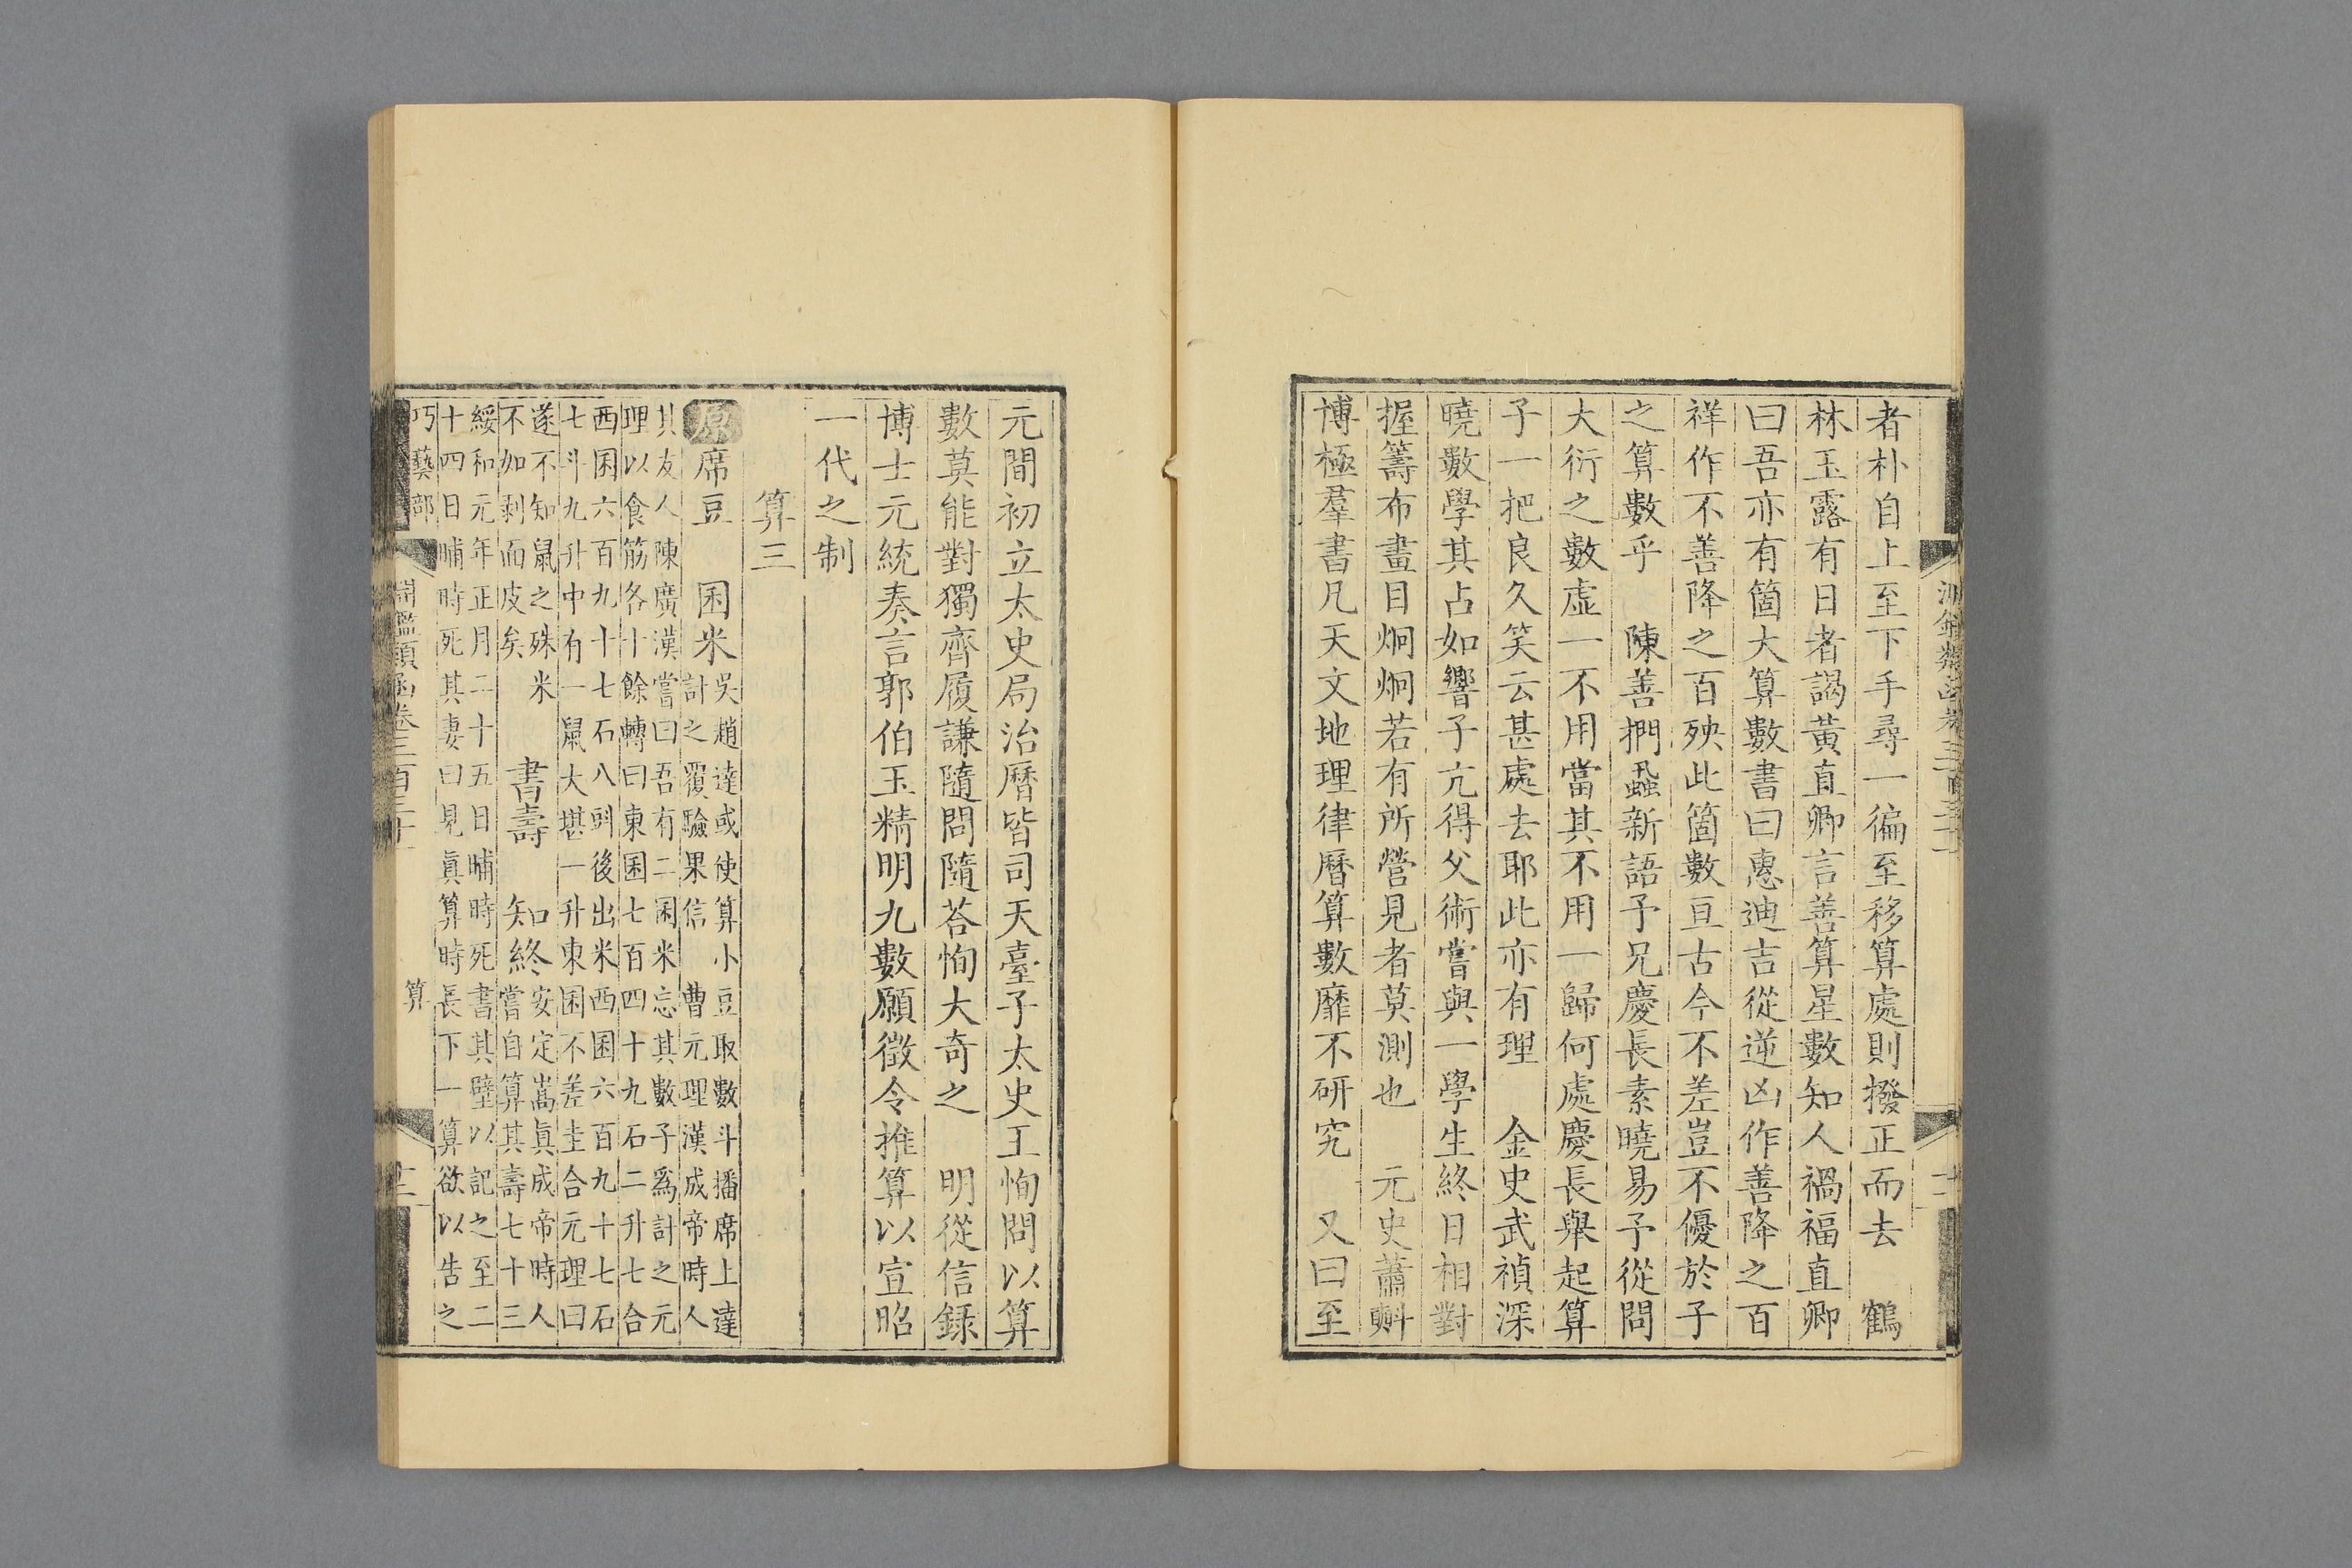 者朴自上至下手尋一徧至移算處則撥正而去　鶴
林玉露有日者謁黃直卿言善算星數知人禍福直卿
曰吾亦有箇大算數書曰惠迪吉從逆凶作善降之百
祥作不善降之百殃此箇數亘古今不差豈不優於子
之算數乎　陳善捫蝨新語予兄慶長素曉易予從問
大衍之數虛一不用當其不用一歸何處慶長舉起算
子一把良久笑云甚處去耶此亦有理　金史武禎深
曉數學其占如響子亢得父術嘗與一學生終日相對
握籌布畫目炯炯若有所營見者莫測也　元史蕭㪺
博極羣書凡天文地理律曆算數靡不研究　又曰至
元間初立太史局治曆皆司天臺子太史王恂問以算
數莫能對獨齊履謙隨問隨荅恂大奇之　明從信録
博士元統奏言郭伯玉精明九數願徵令推算以宣昭
一代之制
算三
原席豆　囷米
吳趙達或使算小豆取數斗播席上達
計之覆驗果信　曹元理漢成帝時人
其友人陳廣漢嘗曰吾有二囷米忘其數子爲計之元
理以食筋各十餘轉曰東囷七百四十九石二升七合
西囷六百九十七石八㪷後出米西囷六百九十七石
七斗九升中有一鼠大堪一升東囷不差圭合元理曰
遂不知鼠之殊米
不如剥面皮矣
書壽　知終
安定嵩眞成帝時人
嘗自算其壽七十三
綏和元年正月二十五日晡時死書其壁以記之至二
十四日晡時死其妻曰見眞算時長下一算欲以告之
巧藝部
淵鑑類函卷三百三十
算